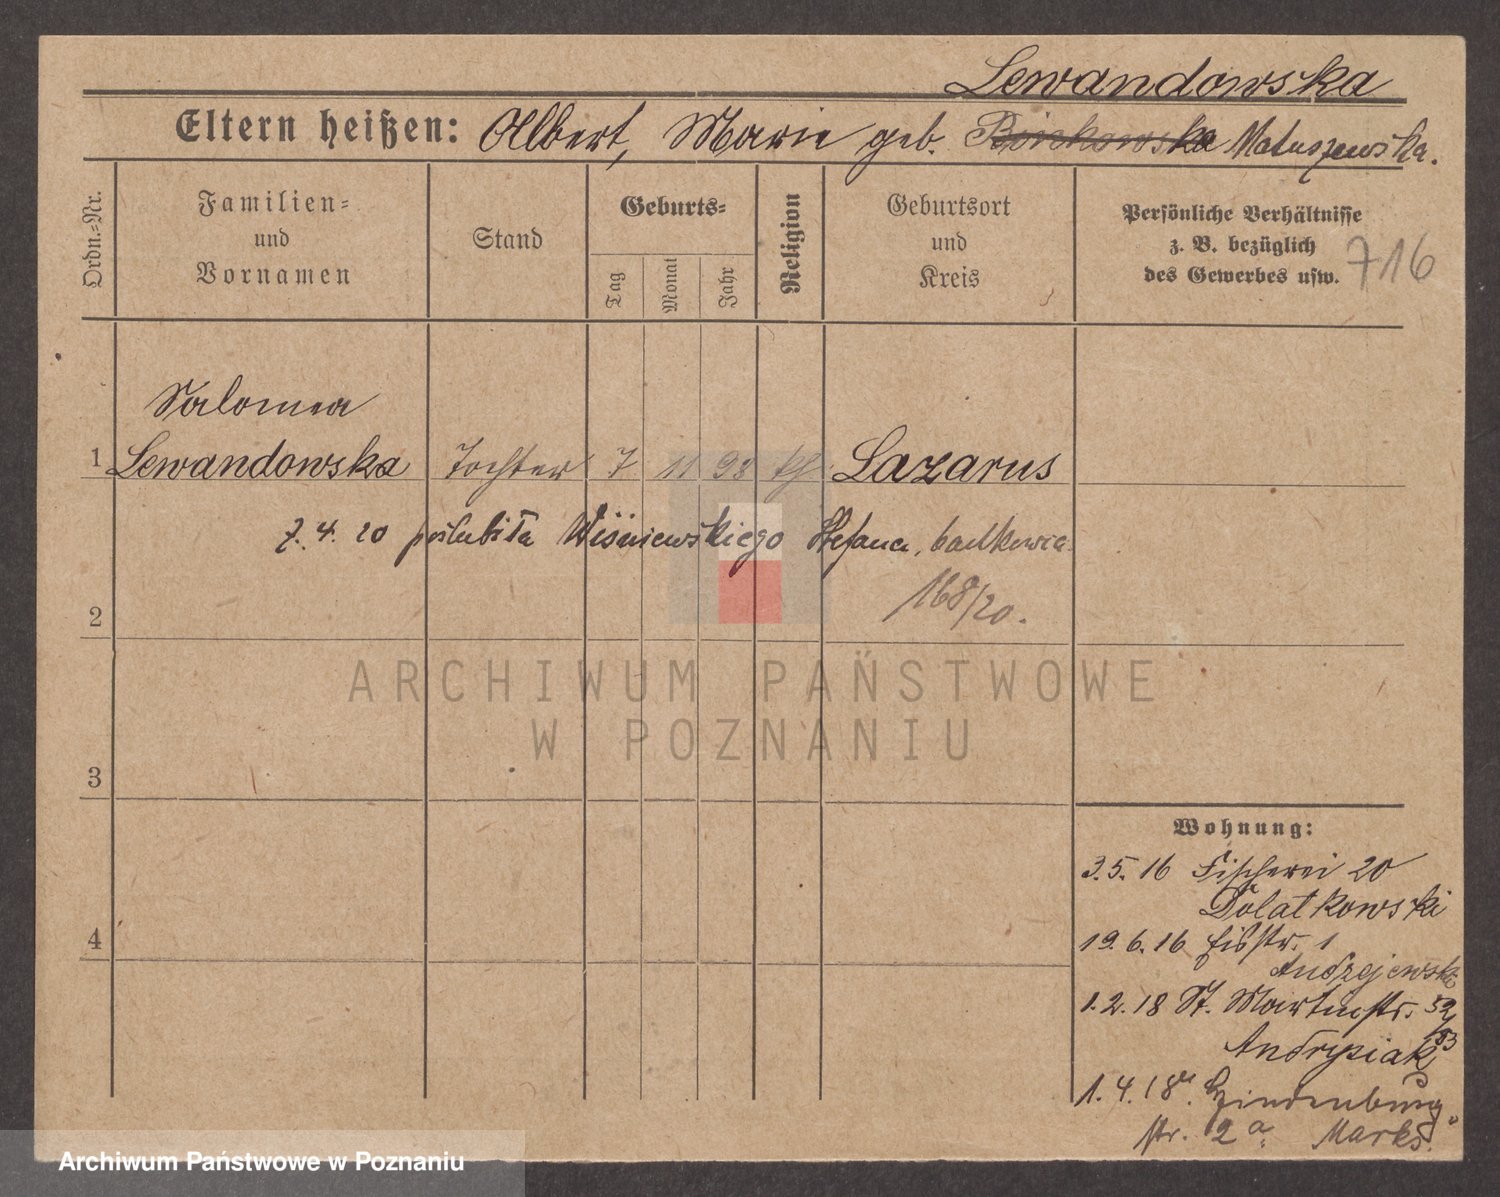 Lewandowska
Eltern heißen: Albert, Marie geb. Borckowska Matuszewska.
Ordn.=Nr.
Familien=
und
Vornamen
Stand
Geburts=
Tag
Monat
Jahr
Religion
Geburtsort
und
Kreis
Persönliche Verhältnisse
z. B. bezüglich
des Gewerbes usw.
716
Salomea
1 Lewandowska Tochter 7 11 98 kth. Lazarus
7. 4. 20 poślubiła Wiśniewskiego Stefana,
168/20.
2
3
4
Wohnung:
3.5.16 Fischerei 20
Dolatkowski
19.6.16 Eibstr. 1
Andrzejewski
1.2.18 St. Martinstr. 52/53
Andrysiak
1.4.18. Hindenburg
str. 2a. Marks.
ARCHIWUM PAŃSTWOWE
W POZNANIU
Archiwum Państwowe w Poznaniu